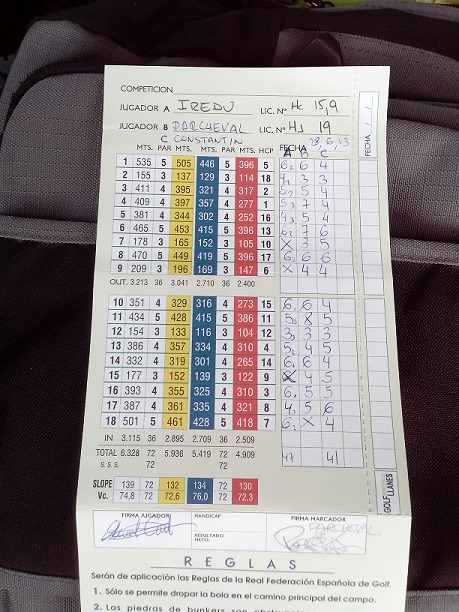 COMPETICION
JUGADOR A IREDU LIC. Nº Hc 15,9
JUGADOR B PARCHEVAL LIC. Nº HJ 19
C CONSTANTIN 28, 6, 13
FECHA / /
MTS. PAR MTS. MTS. PAR MTS. HCP FECHA
A B C
1 535 5 505 446 5 396 5 6 6 4
2 155 3 137 129 3 114 18 4 3 3
3 411 4 395 321 4 317 2 5 5 4
4 409 4 397 357 4 277 1 5 7 4
5 381 4 344 302 4 252 16 4 5 4
6 465 5 453 415 5 396 13 6 7 6
7 178 3 165 152 3 105 10 X 3 5
8 470 5 449 419 5 396 17 6 6 6
9 209 3 196 169 3 147 6 X 4 4
OUT. 3.213 36 3.041 2.710 36 2.400
10 351 4 329 316 4 273 15 6 6 4
11 434 5 428 415 5 386 11 5 8 5
12 154 3 133 116 3 104 12 3 3 3
13 386 4 357 334 4 310 4 5 4 5
14 332 4 319 301 4 265 14 6 6 4
15 177 3 152 139 3 122 9 X 4 5
16 393 4 355 325 4 310 3 6 5 5
17 387 4 361 335 4 321 8 4 5 6
18 501 5 461 428 5 418 7 6 X 4
IN 3.115 36 2.895 2.709 36 2.509
TOTAL 6.328 72 5.936 5.419 72 4.909 47 41
S. S. S. 72 72
SLOPE 139 72 132 134 72 130
Vc. 74,8 72 72,6 76,0 72 72,3
GOLF LLANES
FIRMA JUGADOR HANDICAP FIRMA MARCADOR
PARCHEVAL
RESULTADO
NETO:
REGLAS
Serán de aplicación las Reglas de la Real Federación Española de Golf.
1. Sólo se permite dropar la bola en el camino principal del campo.
2. Las piedras de bunkers son